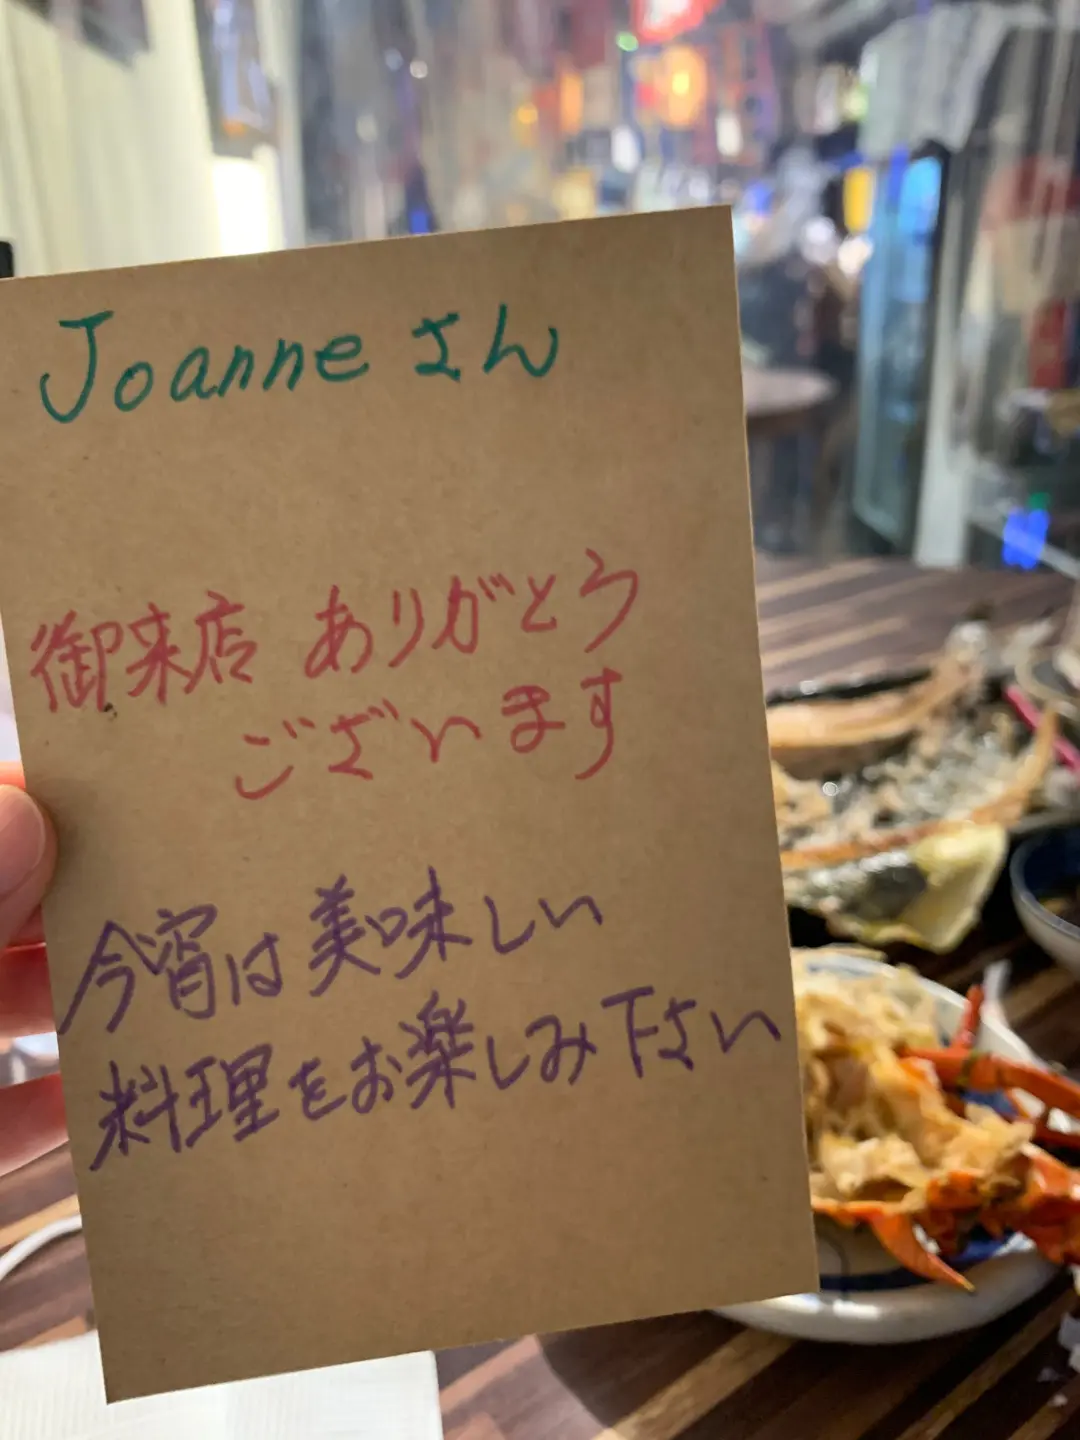 Joanneさん
御来店 ありがとう
ございます
今宵は美味しい
料理をお楽しみ下さい